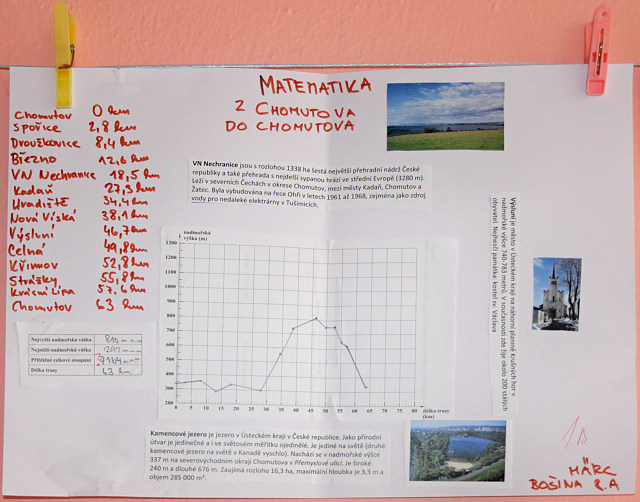 MATEMATIKA
Z CHOMUTOVA
DO CHOMUTOVA
Chomutov 0 km
Spořice 2,8 km
Droužkovice 8,4 km
Březno 12,6 km
VN Nechranice 18,5 km
Kadaň 27,3 km
Hradiště 34,4 km
Nová Víska 38,1 km
Výsluní 46,7 km
Celná 49,8 km
Křimov 52,8 km
Strážky 55,8 km
Krásná Lípa 57,6 km
Chomutov 63 km
VN Nechranice jsou s rozlohou 1338 ha šestá největší přehradní nádrž České
republiky a také přehrada s nejdelší sypanou hrází ve střední Evropě (3280 m).
Leží v severních Čechách v okrese Chomutov, mezi městy Kadaň, Chomutov a
Žatec. Byla vybudována na řece Ohři v letech 1961 až 1968, zejména jako zdroj
vody pro nedaleké elektrárny v Tušimicích.
Výsluní je město v Ústeckém kraji na náhorní planině Krušných hor v
nadmořské výšce 740-783 metrů. V současnosti zde žije okolo 200 stálých
obyvatel. Nejhezčí památka: kostel sv. Václava
nadmořská
výška (m)
1300
1200
1100
1000
900
800
700
600
500
400
300
200
0 5 10 15 20 25 30 35 40 45 50 55 60 65 70 75 80
délka trasy
(km)
Nejvyšší nadmořská výška
Nejnižší nadmořská výška
Přibližné celkové stoupání
Délka trasy 63 km
Kamencové jezero je jezero v Ústeckém kraji v České republice. Jako přírodní
útvar je jedinečné a i ve světovém měřítku ojedinělé. Je jediné na světě (druhé
kamencové jezero na světě v Kanadě vyschlo). Nachází se v nadmořské výšce
337 m na severovýchodním okraji Chomutova v Přemyslově ulici. Je široké
240 m a dlouhé 676 m. Zaujímá rozlohu 16,3 ha, maximální hloubka je 3,3 m a
objem 285 000 m³.
MÄRC
BOŠINA 8.A